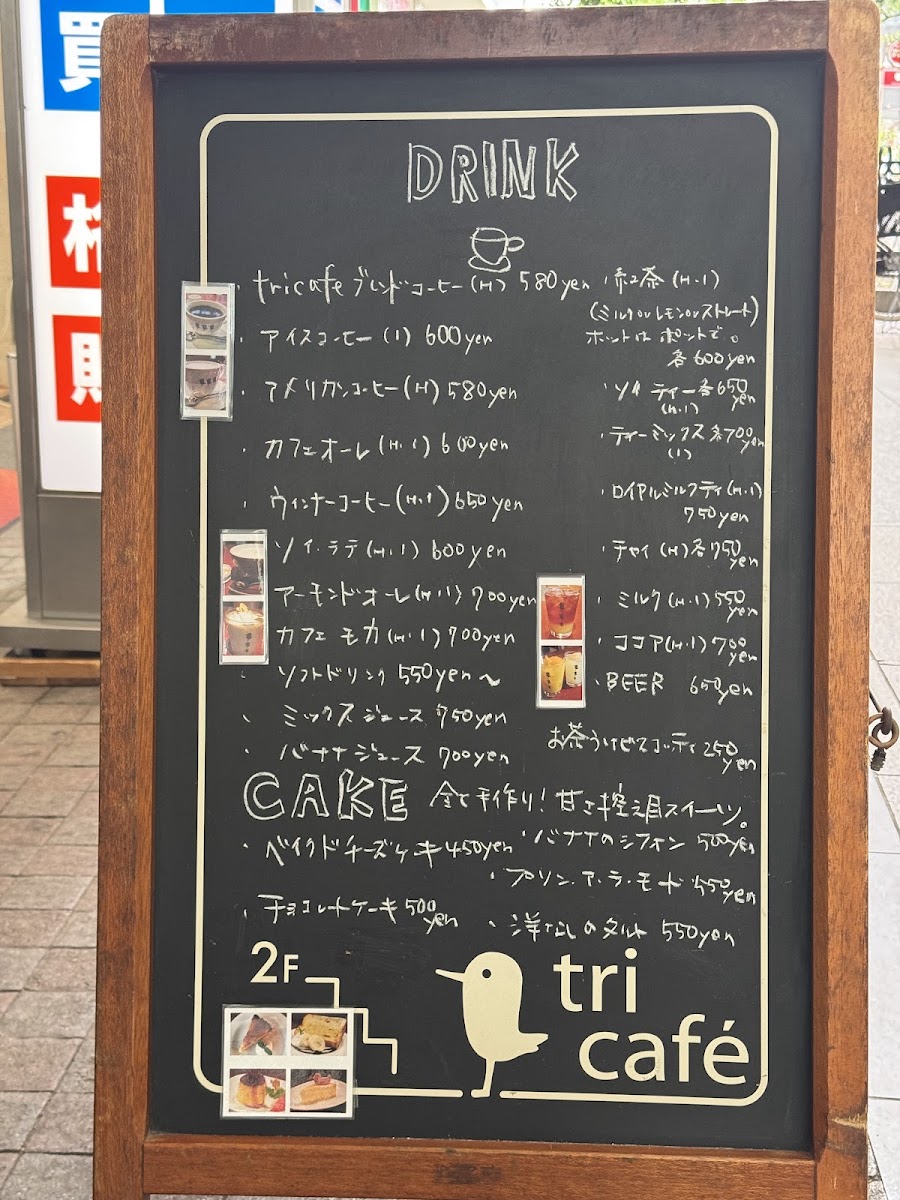 買
DRINK
・tricafeブレンドコーヒー(H) 580yen
・アイスコーヒー(I) 600yen
・アメリカンコーヒー(H) 580yen
・カフェオーレ(H・I) 600yen
・ウィンナーコーヒー(H・I) 650yen
ソイ・ラテ(H・I) 600yen
アーモンドオーレ(H・I) 700yen
カフェモカ(H・I) 700yen
・ソフトドリンク 550yen〜
・ミックスジュース 750yen
・バナナジュース 700yen
・紅茶(H・I)
(ミルクorレモンorストレート)
ホットはポットで。
各600yen
・ソイティー各650yen
(H・I)
・ティーミックス各700yen
(I)
・ロイヤルミルクティ(H・I)
750yen
・チャイ(H)各750yen
・ミルク(H・I) 550yen
・ココア(H・I) 700yen
・BEER 650yen
お茶うけビスコッティ250yen
CAKE 全て手作り!甘さ控え目スイーツ。
・ベイクドチーズケーキ450yen
・バナナのシフォン 500yen
・プリン・ア・ラ・モード 550yen
・チョコレートケーキ500yen
・洋なしのタルト 550yen
2F
tri
café